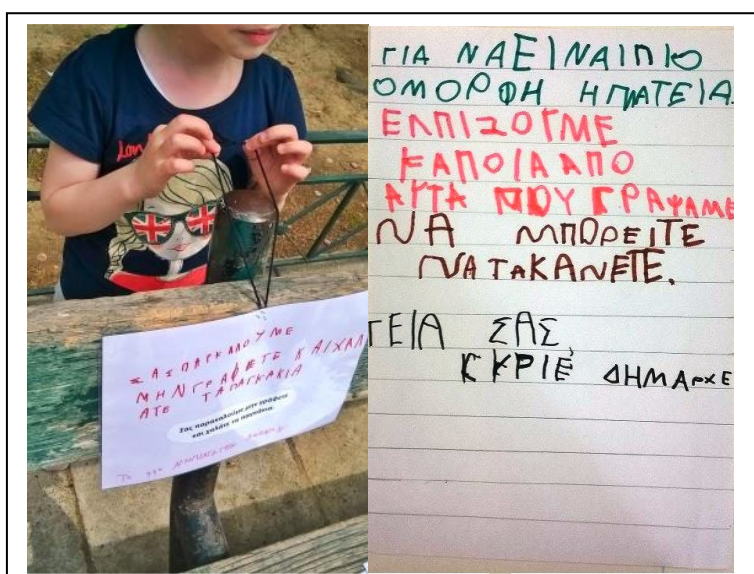 ΣΑΣ ΠΑΡΚΑΛΟΥΜΕ
ΜΗΝ ΓΡΑΦΕΤΕ ΚΑΙ ΧΑΛ
ΑΤΕ ΤΑ ΠΑΓΚΑΚΙΑ
Σας παρακαλούμε μην γράφετε
και χαλάτε τα παγκάκια.
Το
ΓΙΑ ΝΑ ΕΙΝΑΙ ΠΙΟ
ΟΜΟΡΦΗ Η ΠΛΑΤΕΙΑ
ΕΛΠΙΖΟΥΜΕ
ΚΑΠΟΙΑ ΑΠΟ
ΑΥΤΑ ΠΟΥ ΓΡΑΨΑΜΕ
ΝΑ ΜΠΟΡΕΙΤΕ
ΝΑ ΤΑ ΚΑΝΕΤΕ.
ΓΕΙΑ ΣΑΣ,
ΚΥΡΙΕ ΔΗΜΑΡΧΕ